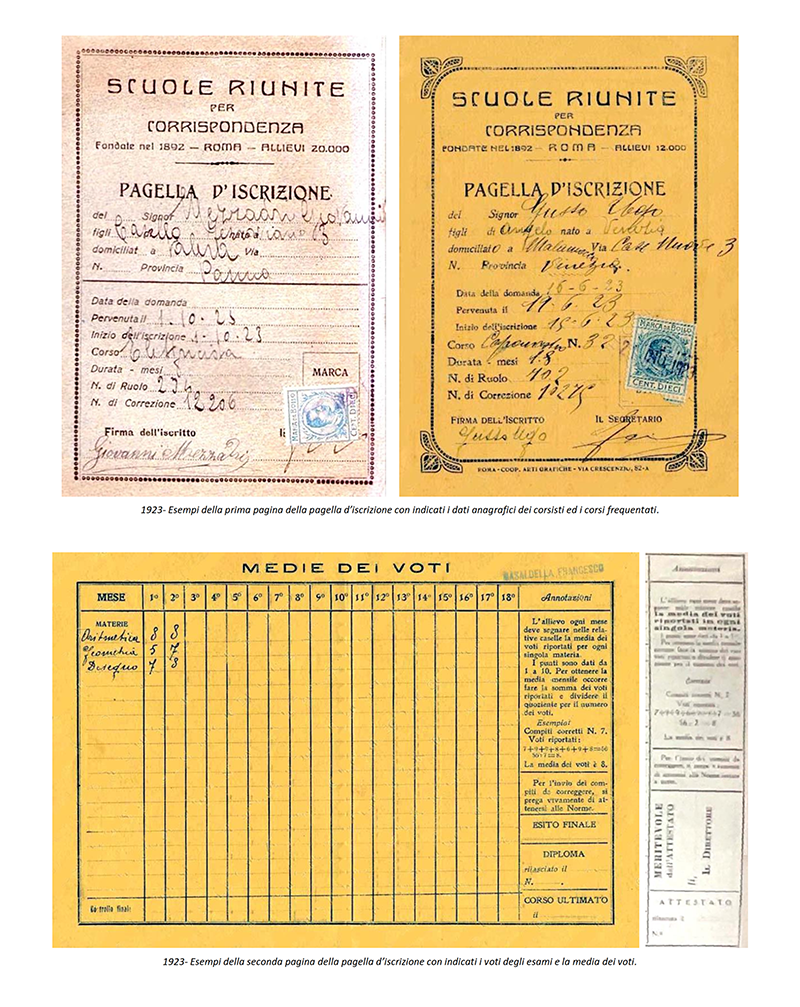 SCUOLE RIUNITE
PER
CORRISPONDENZA
Fondate nel 1892 – ROMA – ALLIEVI 20.000
PAGELLA D'ISCRIZIONE
del Signor Giovanni
figli
domiciliat a Via
N. Provincia Parma
Data della domanda
Pervenuta il 1-10-23
Inizio dell'iscrizione 1-10-23
Corso
Durata - mesi
N. di Ruolo 274
N. di Correzione 12206
MARCA
MARCA DA BOLLO
CENT. DIECI
Firma dell'iscritto
Giovanni Mezzadri
SCUOLE RIUNITE
PER
CORRISPONDENZA
FONDATE NEL 1892 – ROMA – ALLIEVI 12.000
PAGELLA D'ISCRIZIONE
del Signor Gusso Ugo
figli di Angelo nato a
domiciliato a Via Case Nuove 3
N. Provincia Venezia.
Data della domanda 16-6-23
Pervenuta il 19.6.23
Inizio dell'iscrizione 18-6-23
Corso N. 32
Durata - mesi 18
N. di Ruolo 102
N. di Correzione
MARCA DA BOLLO
CENT. DIECI
FIRMA DELL'ISCRITTO IL SEGRETARIO
Gusso Ugo
ROMA - COOP. ARTI GRAFICHE - VIA CRESCENZIO, 82-A
1923- Esempi della prima pagina della pagella d'iscrizione con indicati i dati anagrafici dei corsisti ed i corsi frequentati.
MEDIE DEI VOTI
BASALDELLA FRANCESCO
MESE 1º 2º 3º 4º 5º 6º 7º 8º 9º 10º 11º 12º 13º 14º 15º 16º 17º 18º Annotazioni
MATERIE
Aritmetica 8 8
Geometria 5 7
Disegno 7 8
L'allievo ogni mese
deve segnare nelle rela-
tive caselle la media dei
voti riportati per ogni
singola materia.
I punti sono dati da
1 a 10. Per ottenere la
media mensile occorre
fare la somma dei voti
riportati e dividere il
quoziente per il numero
dei voti.
Esempio:
Compiti corretti N. 7.
Voti riportati:
7+9+9+8+6+9+8=56
56:7=8.
La media dei voti è 8.
Per l'invio dei com-
piti da correggere, si
prega vivamente di at-
tenersi alle Norme.
ESITO FINALE
DIPLOMA
rilasciato il
N.
CORSO ULTIMATO
il
Controllo finale
Annotazioni
la media dei voti
riportati in ogni
singola materia.
La media dei voti è 8
MERITEVOLE
dell'ATTESTATO
li,
IL DIRETTORE
ATTESTATO
1923- Esempi della seconda pagina della pagella d'iscrizione con indicati i voti degli esami e la media dei voti.